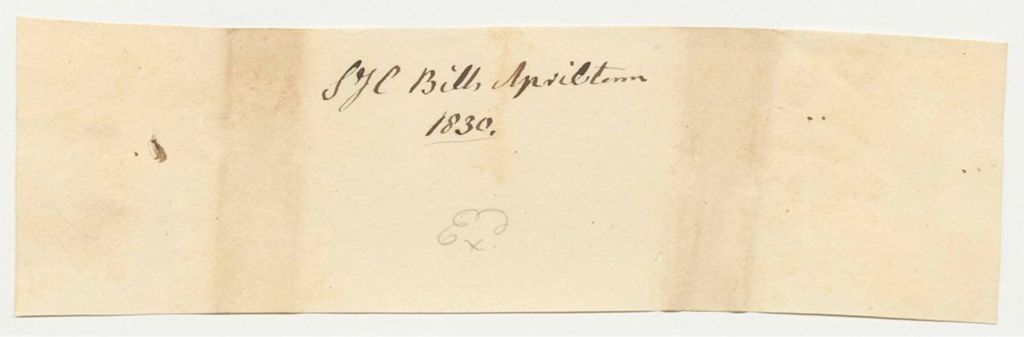 SJC Bills April term
1830.
Ex